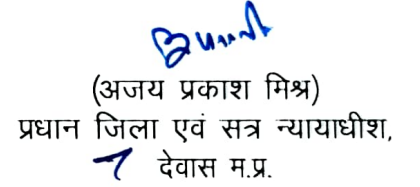 (अजय प्रकाश मिश्र)
प्रधान जिला एवं सत्र न्यायाधीश,
देवास म.प्र.